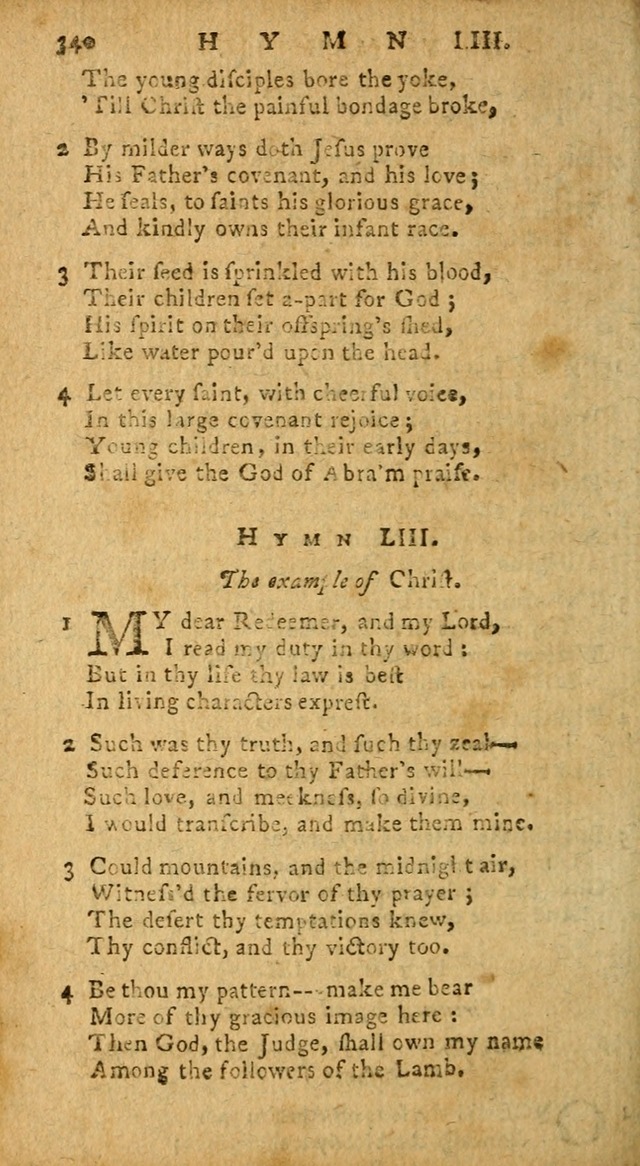 340 H Y M N LIII.
The young diſciples bore the yoke,
'Till Chriſt the painful bondage broke,
2 By milder ways doth Jeſus prove
His Father's covenant, and his love;
He ſeals, to ſaints his glorious grace,
And kindly owns their infant race.
3 Their ſeed is ſprinkled with his blood,
Their children ſet a-part for God;
His ſpirit on their offſpring's ſhed,
Like water pour'd upon the head.
4 Let every ſaint, with cheerful voice,
In this large covenant rejoice;
Young children, in their early days,
Shall give the God of Abra'm praiſe.
HYMN LIII.
The example of Chriſt.
1 MY dear Redeemer, and my Lord,
I read my duty in thy word:
But in thy life thy law is beſt
In living characters expreſt.
2 Such was thy truth, and ſuch thy zeal—
Such deference to thy Father's will—
Such love, and meekneſs, ſo divine,
I would tranſcribe, and make them mine.
3 Could mountains, and the midnight air,
Witneſs'd the fervor of thy prayer;
The deſert thy temptations knew,
Thy conflict, and thy victory too.
4 Be thou my pattern---make me bear
More of thy gracious image here:
Then God, the Judge, ſhall own my name
Among the followers of the Lamb.